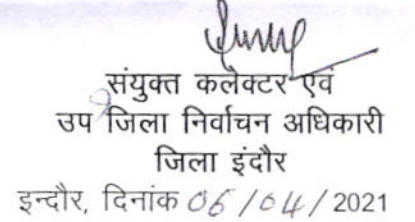 संयुक्त कलेक्टर एवं
उप जिला निर्वाचन अधिकारी
जिला इंदौर
इन्दौर, दिनांक 06/04/2021